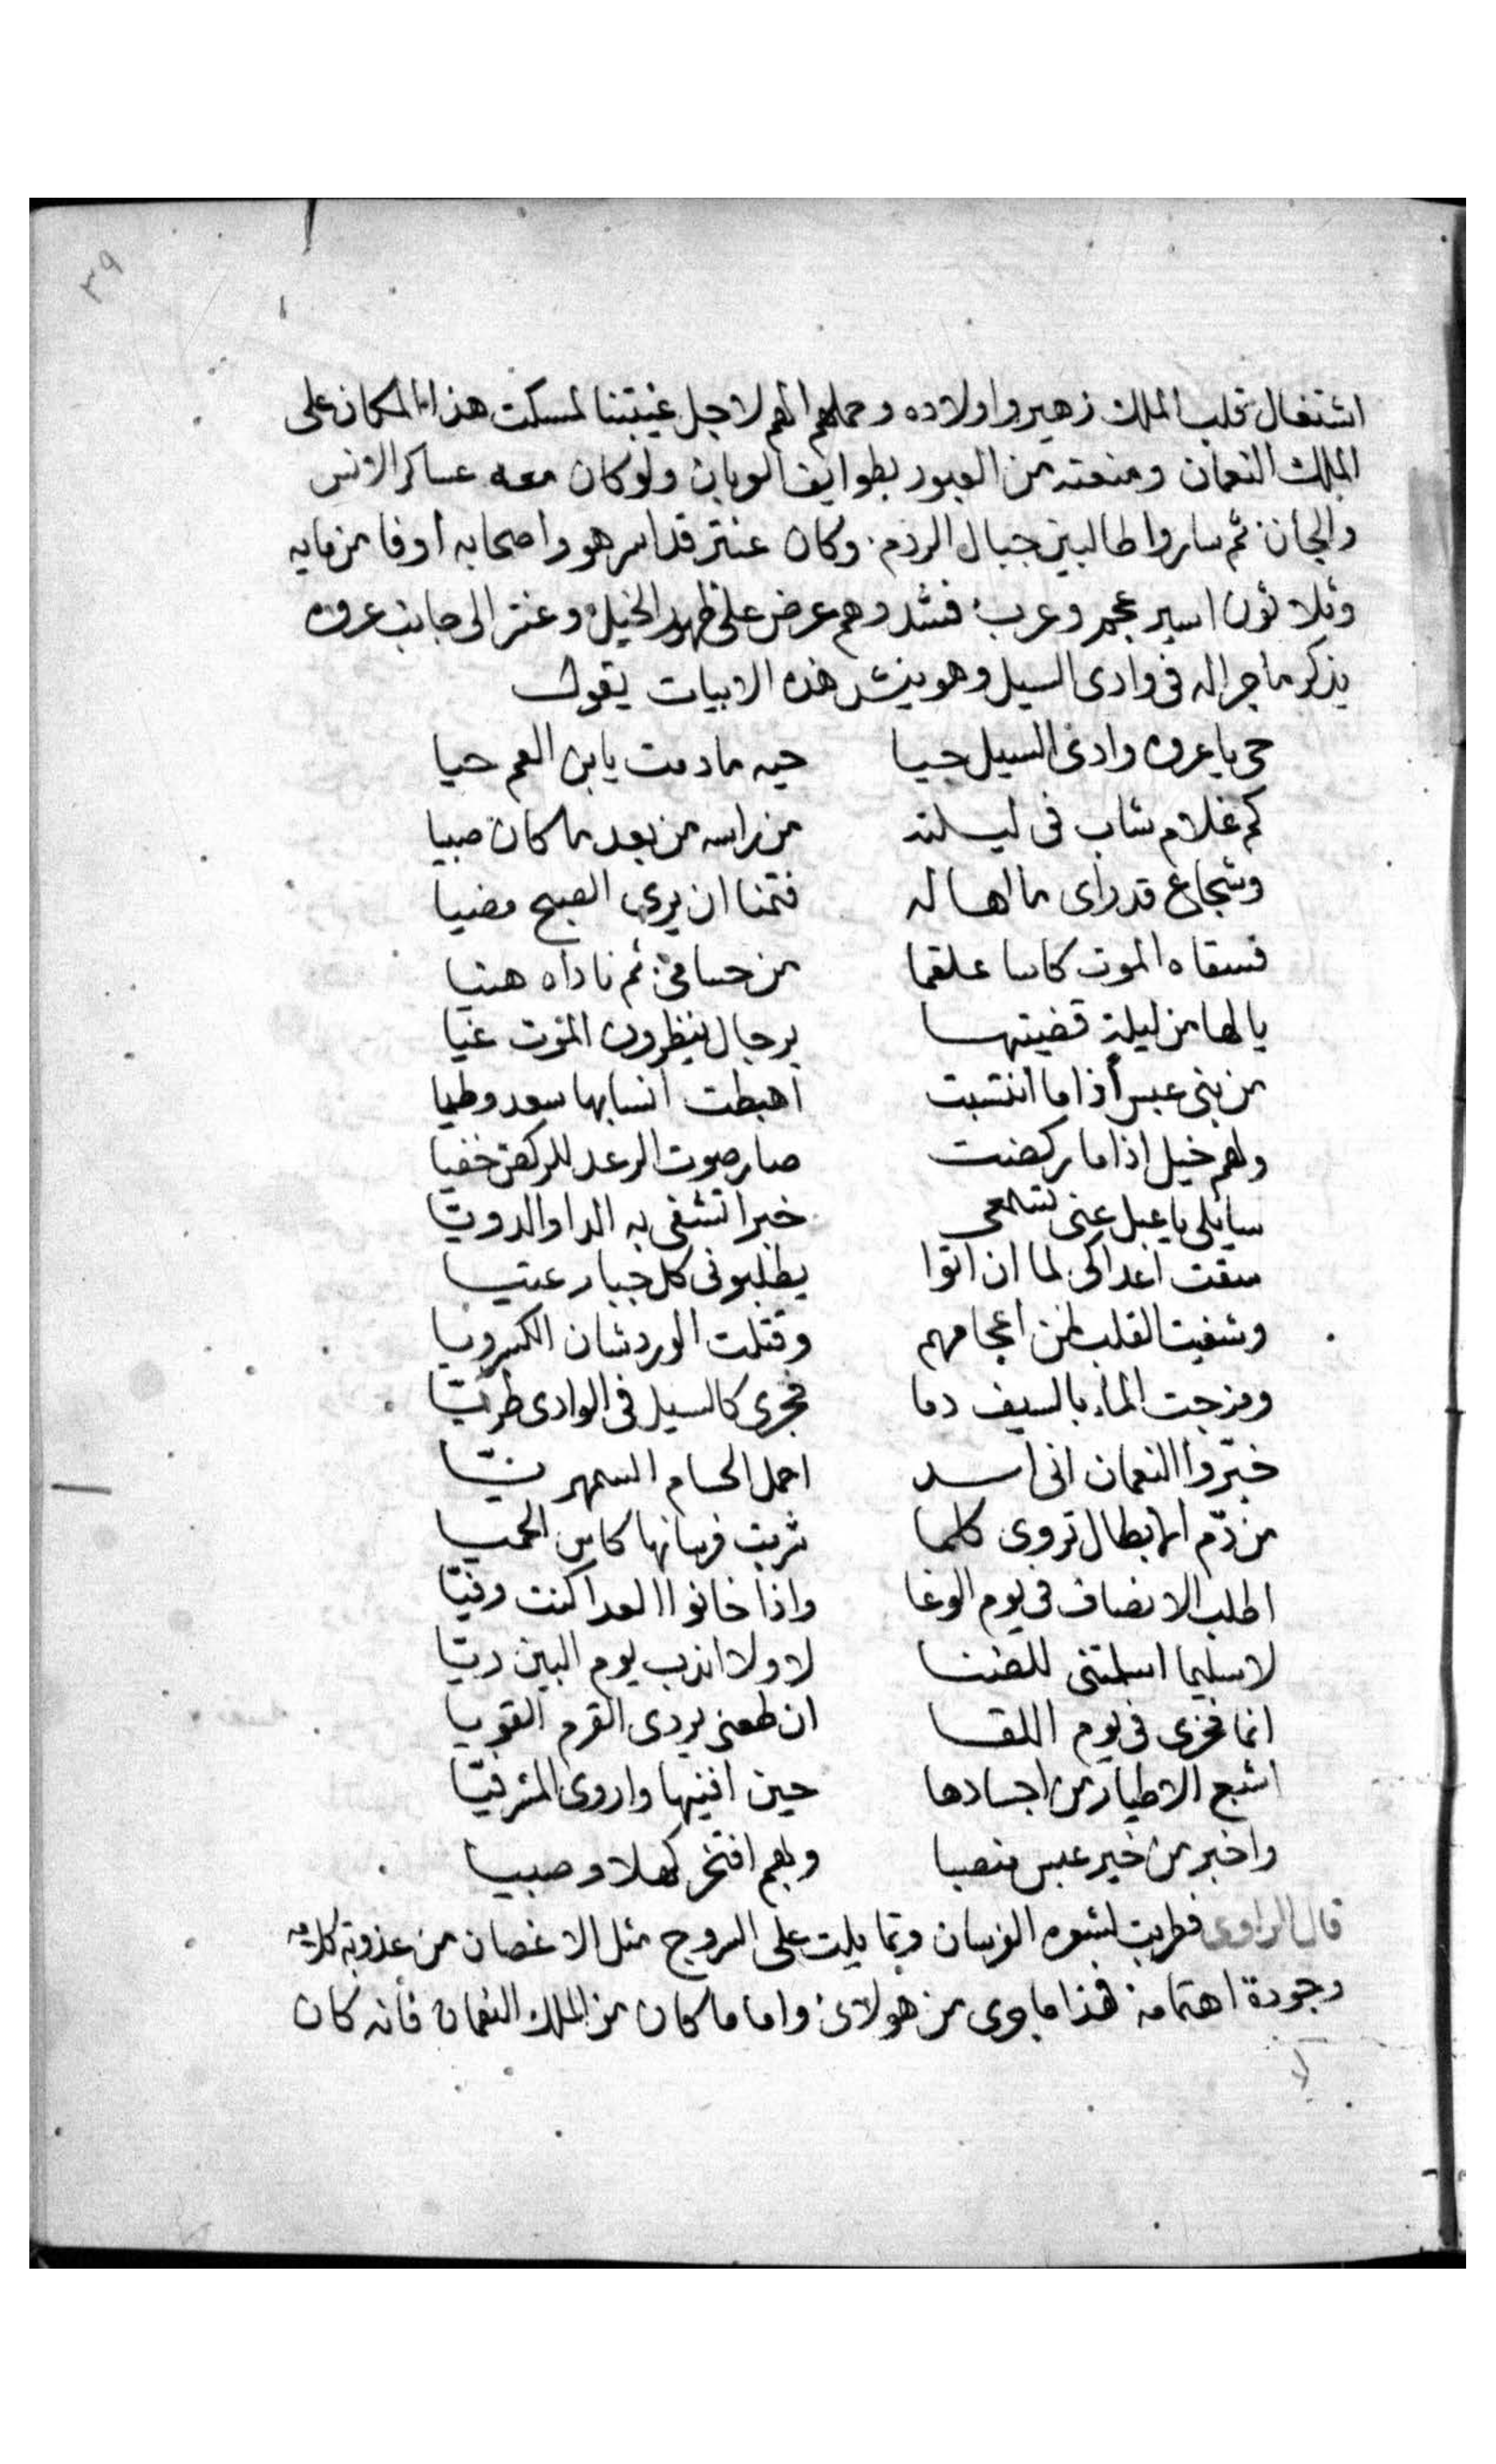 ٣٩
اشتغال قلب الملك زهير واولاده وحملهم الهم لاجل غيبتنا لمسكت هذا المكان على
الملك النعمان ومنعته من العبور بطوايف العربان ولو كان معه عساكر الانس
والجان ثم ساروا طالبين جبال الردم وكان عنتر قد اسر هو واصحابه اوفا من مايه
وثلاثون اسير عجم وعرب فشدوهم عرض على ظهور الخيل وعنتر الى جانب عروه
يذكر ما جرا له فى وادى السيل وهو ينشد هذه الابيات يقول
حى يا عروه وادى السيل حيا حيه ما دمت يابن العم حيا
كم غلام شاب فى ليلته من راسه من بعد ما كان صبيا
وشجاع قد راى ما اهاله فتمنا ان يرى الصبح مضيا
فسقاه الموت كاسا علقما من حسامى ثم ناداه هنيا
يالها من ليلة قضيتها برجال ينظرون الموت غيا
من بنى عبس اذا ما انتسبت اهبطت انسابها سعد وطيا
ولهم خيل اذا ما ركضت صار صوت الرعد للركض خفيا
سايلى يا عبل عنى تسمعى خبرا تشفى به الدا والدويا
سقت اعداكى لما ان اتوا يطلبونى كل جبار عتيا
وشفيت القلب من اعجامهم وقتلت الوردشان
ومزجت الماء بالسيف دما فجرى كالسيل فى الوادى طريّا
خبّروا النعمان انى اسد احمل الحسام السمهريّا
من دم الابطال تروى كلما شربت فرسانها كاس الحميا
اطلب الانصاف فى يوم الوغا واذا خانوا العدا كنت وفيّا
لا سليما اسلمتنى للضنا لا ولا اندب يوم البين ريّا
انما فخرى فى يوم اللقا ان طعنى يردى القرم القويا
اشبع الاطيار من اجسادها حين افنيها واروى المشرفيّا
واخبر من خير عبس منصبا وبهم افتخر كهلا وصبيا
قال الراوى فطربت لشعره الفرسان وتمايلت على السروج مثل الاغصان من عذوبة كلامه
وجودة اهتمامه فهذا ما جرى من هولاى واما ما كان من الملك النعمان فأنه كان